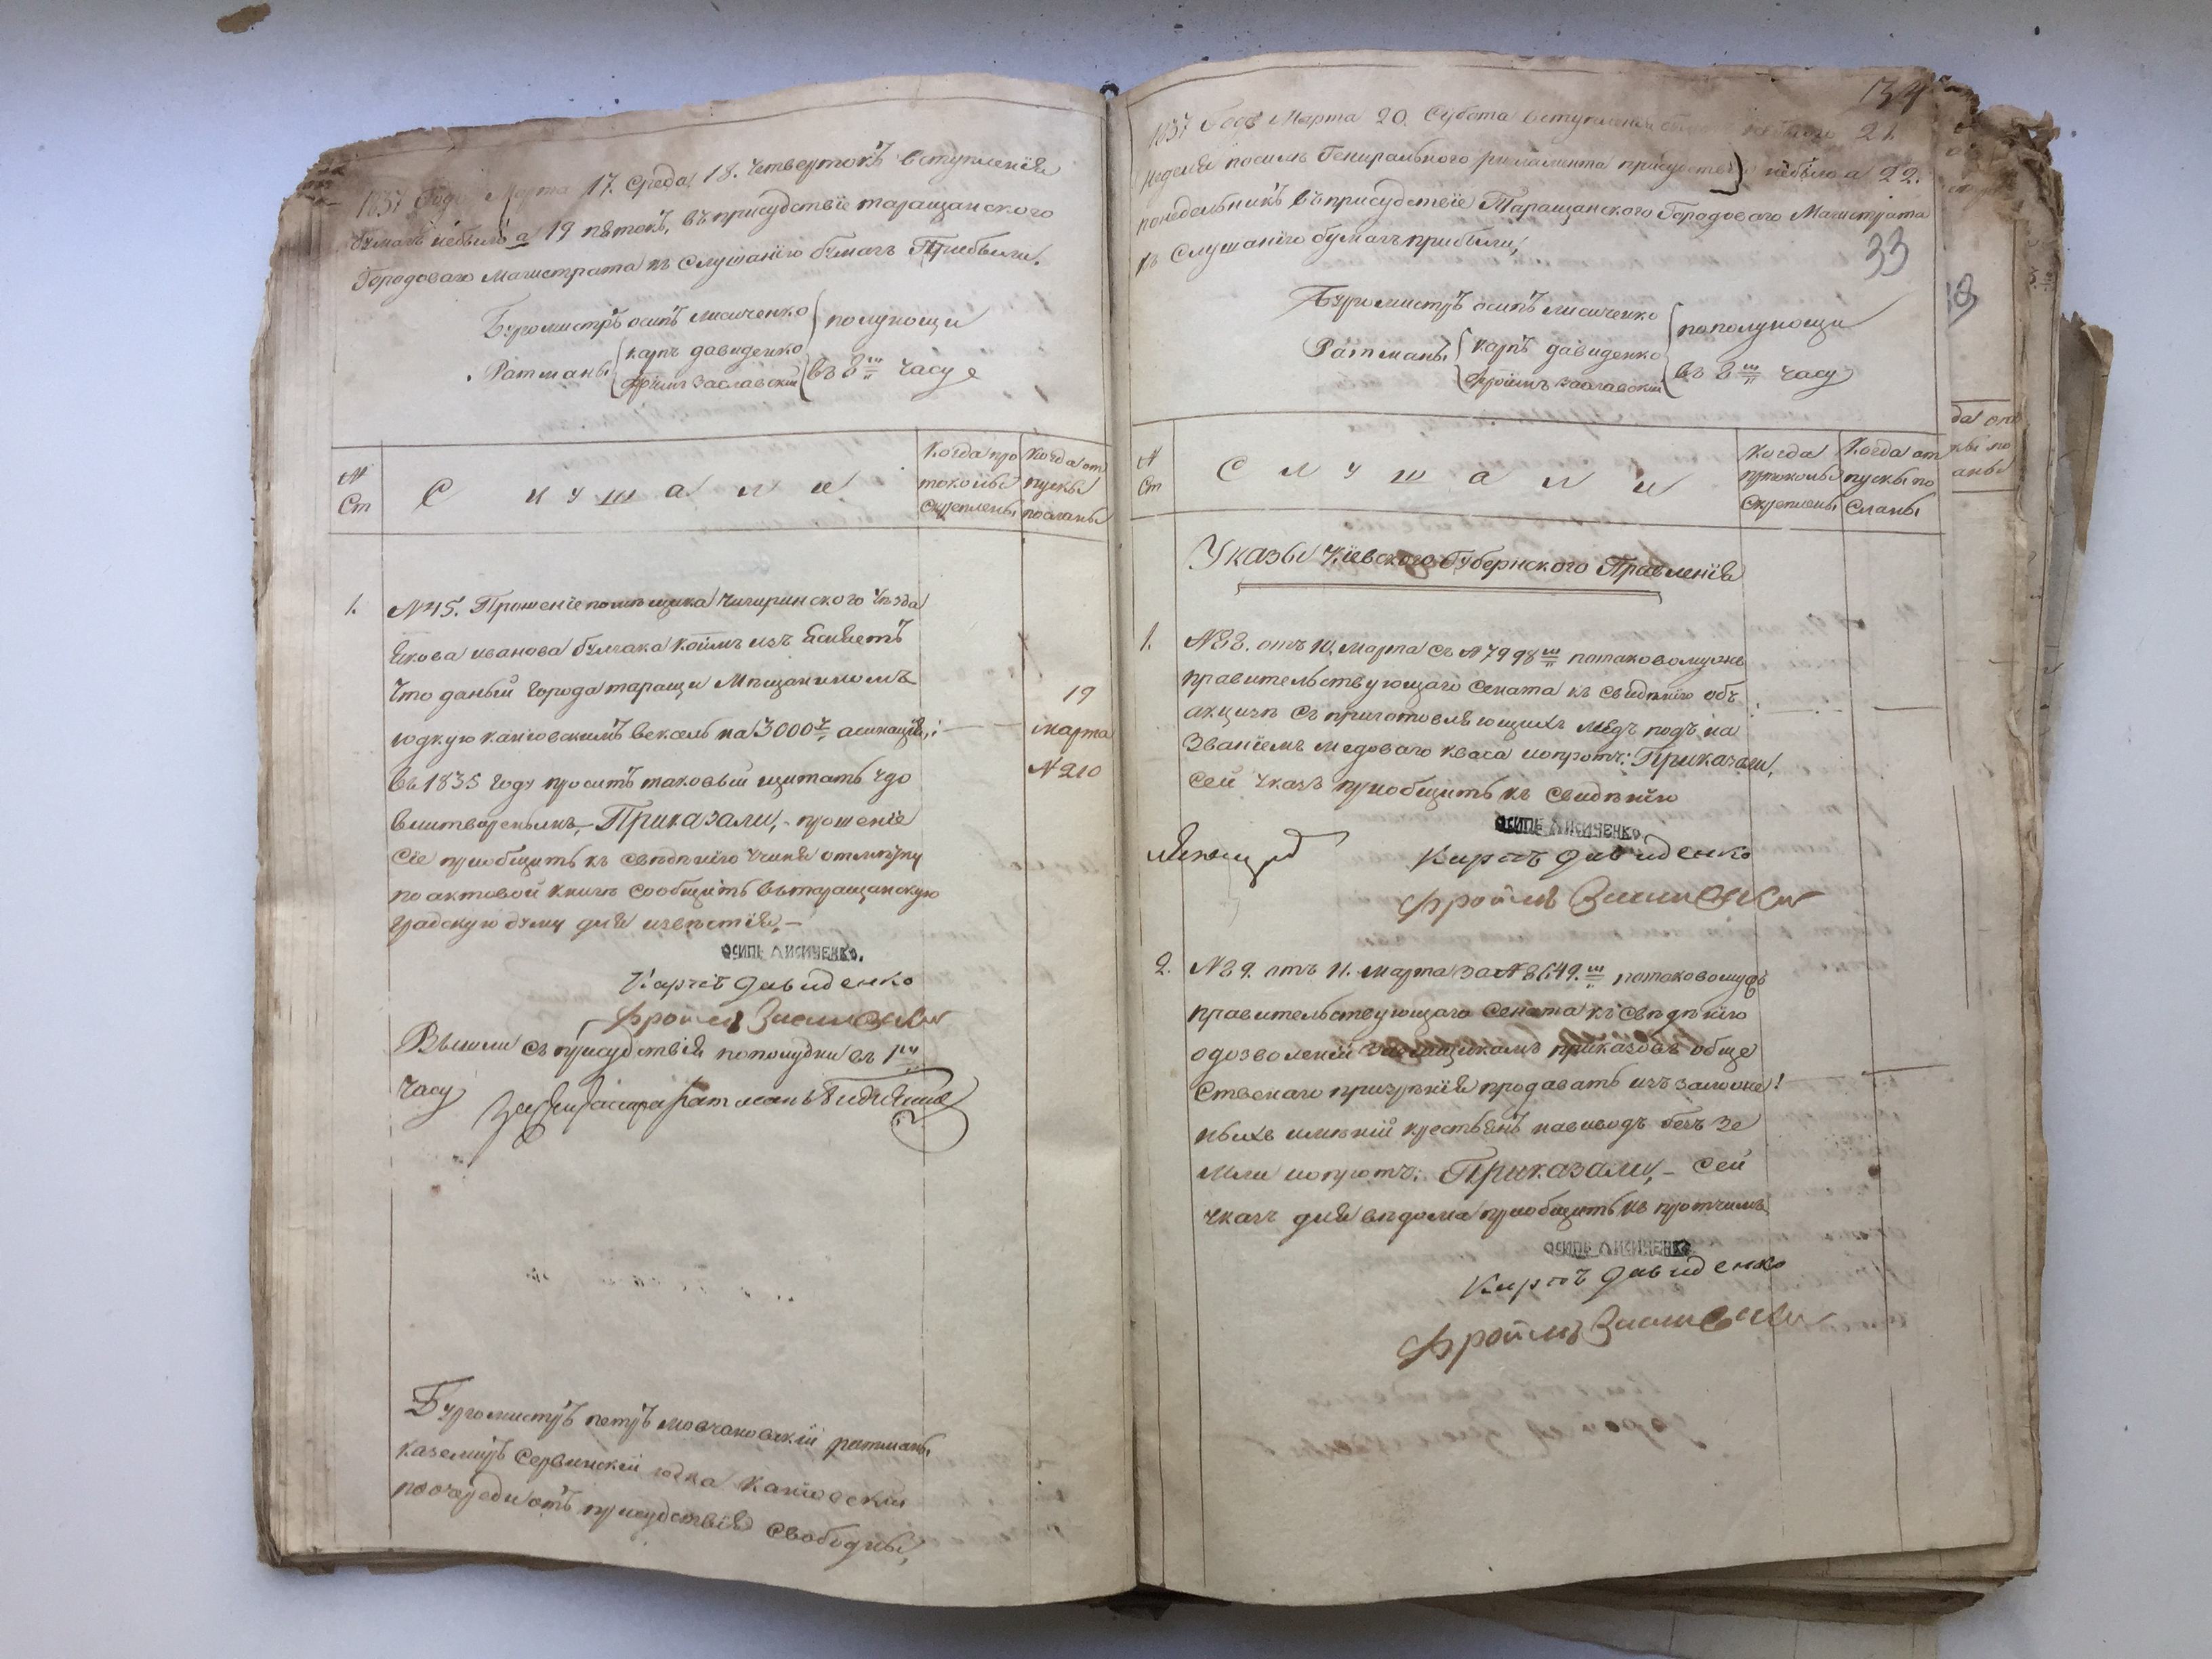 1837 Года Марта 17. Среда, 18. Четвертокъ вступленія
бумагъ небыло а 19 пятокъ, въ присудствіе таращанского
Городоваго магистрата къ слушанію бумагъ Прибыли.
Бургомистръ осипъ лисиченко
полунощи
Ратманы
карпъ давиденко
Фроимъ Заславский
въ 8 ш часу
№
Ст
С л у ш а л и
Когда про
токолы
Скреплены
Когда от
пуски
посланы
1.
№ 45. Прошеніе помѣщика Чигиринского уѣзда
Якова иванова булчака коимъ изъясняетъ
Что даный города таращи Мѣщаниномъ
юдкую каніовскимъ вексель на 3000 р. асигнацій,
въ 1835 году проситъ таковый щитать удо
влитвореннымъ, Приказали, прошеніе
Сіе приобщить къ сведенію учиня отметку
по актовой книге Сообщить въ таращанскую
градскую думу для извѣстія,
19
марта
№ 210
ОСИПЪ ЛИСИЧЕНКО.
Карпъ Давиденко
Фроимъ Заславски
Вышли съ присудствія пополудни въ 1 м
часу
Бургомистръ петръ мовчановскій ратманы
каземиръ Сервинскій юдка Каніовскій
поочереди отъ присудствія свободны,
134
1837 Года Марта 20. Субота вступленія 21
неделя посилѣ Генеральнаго рягламента присудствія небыло а 22.
понедельникъ въ присудствіе Таращанского Городоваго Магистрата
къ Слушанію бумагъ прибыли,
33
Бургомистръ осипъ лисиченко
пополунощи
Ратманы
карпъ давиденко
Фроимъ Заславскій
въ 8 ш часу
№
Ст
С л у ш а л и
Когда
протоколы
Скреплены
Когда от
пуски по
Сланы
Указы Кіевского Губернского Правленія
1.
№ 88. отъ 10. марта съ № 7998 ш потаковому жъ
правительствующаго Сената къ сведѣнію объ
акцизѣ съ приготовляющихъ медъ подъ на
Званіемъ медоваго кваса ипротч: Приказали,
сей указъ приобщить къ сведѣнію
ОСИПЪ ЛИСИЧЕНКО.
Карпъ Давиденко
Фроимъ Заславски
2.
№ 89. отъ 11. марта за № 8649. ш потаковомужъ
правительствующаго Сената къ сведѣнію
одозволеніи заемщикамъ приказовъ обще
Ственаго призрѣнія продавать изъ заложе
ныхъ имѣній крестьянъ навиводъ безъ Зе
мли ипротч: Приказали, – Сей
указъ для вѣдома приобщить къ протчимъ
ОСИПЪ ЛИСИЧЕНКО
Карпъ Давиденко
Фроимъ Заславски